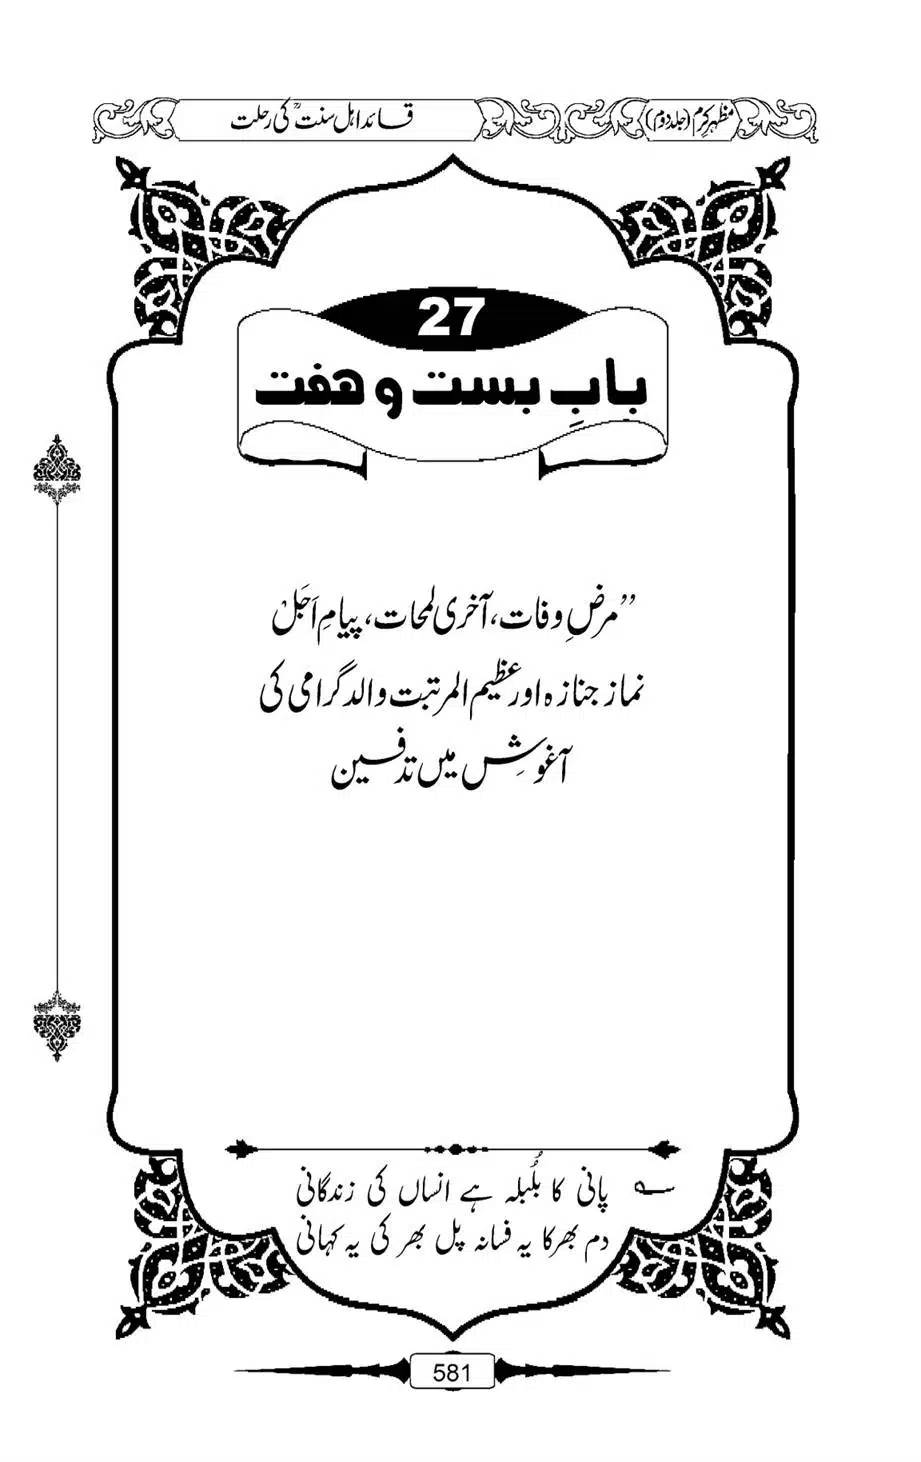 مظہرِ کرم (جلد دوم)
قائد اہل سنتؒ کی رحلت
27
بابِ بست و ہفت
”مرضِ وفات، آخری لمحات، پیامِ اَجَلْ
نماز جنازہ اور عظیم المرتبت والد گرامی کی
آغوشِ میں تدفین
؎ پانی کا بُلبُلہ ہے انساں کی زندگانی
دم بھر کا یہ فسانہ پل بھر کی یہ کہانی
581